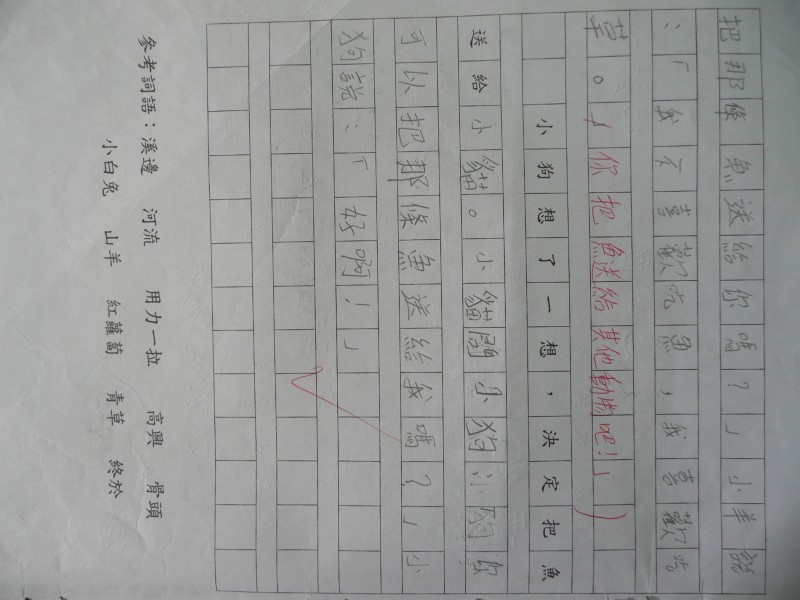 把那條魚送給你嗎？」小羊說
：「我不喜歡吃魚，我喜歡吃
草。」你把魚送給其他動物吧！」
小狗想了一想，決定把魚
送給小貓。小貓問小狗小狗你
可以把那條魚送給我嗎？」小
狗說：「好啊！」
參考詞語：溪邊 河流 用力一拉 高興 骨頭
小白兔 山羊 紅蘿蔔 青草 終於